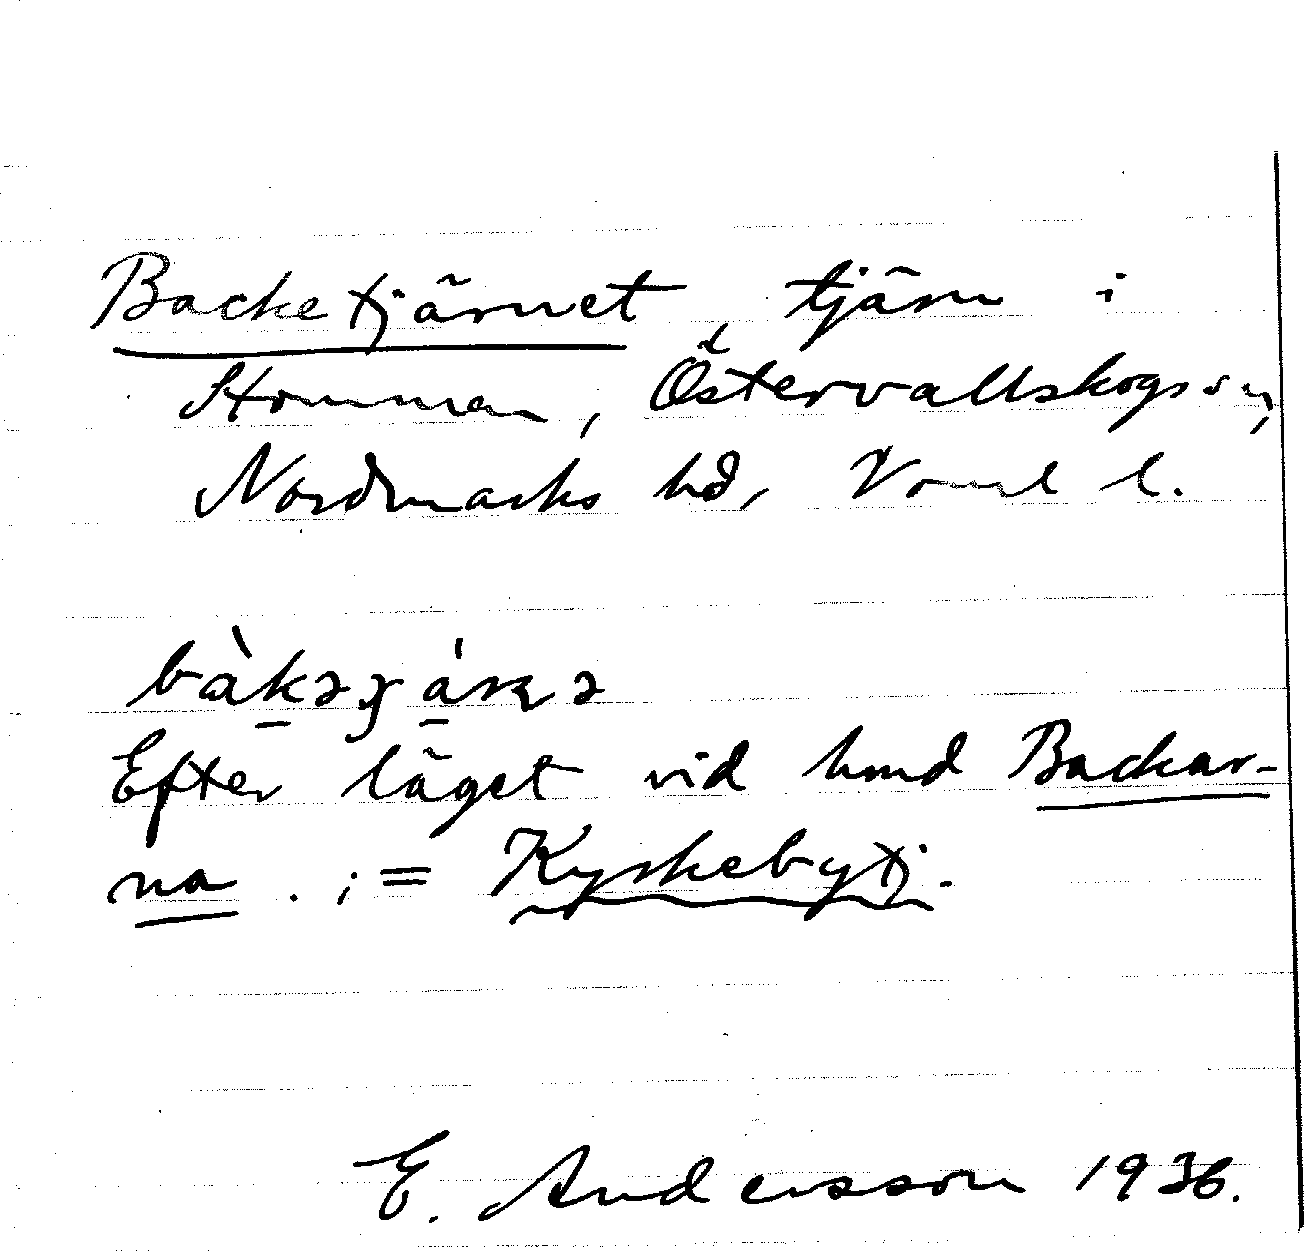 Backetjärnet, tjärn i
Stommen, Östervallskogs sn,
Nordmarks hd, Vrml l.
Efter läget vid hmd Backar-
na. ; = Kyrkebytj.
E. Andersson 1936.